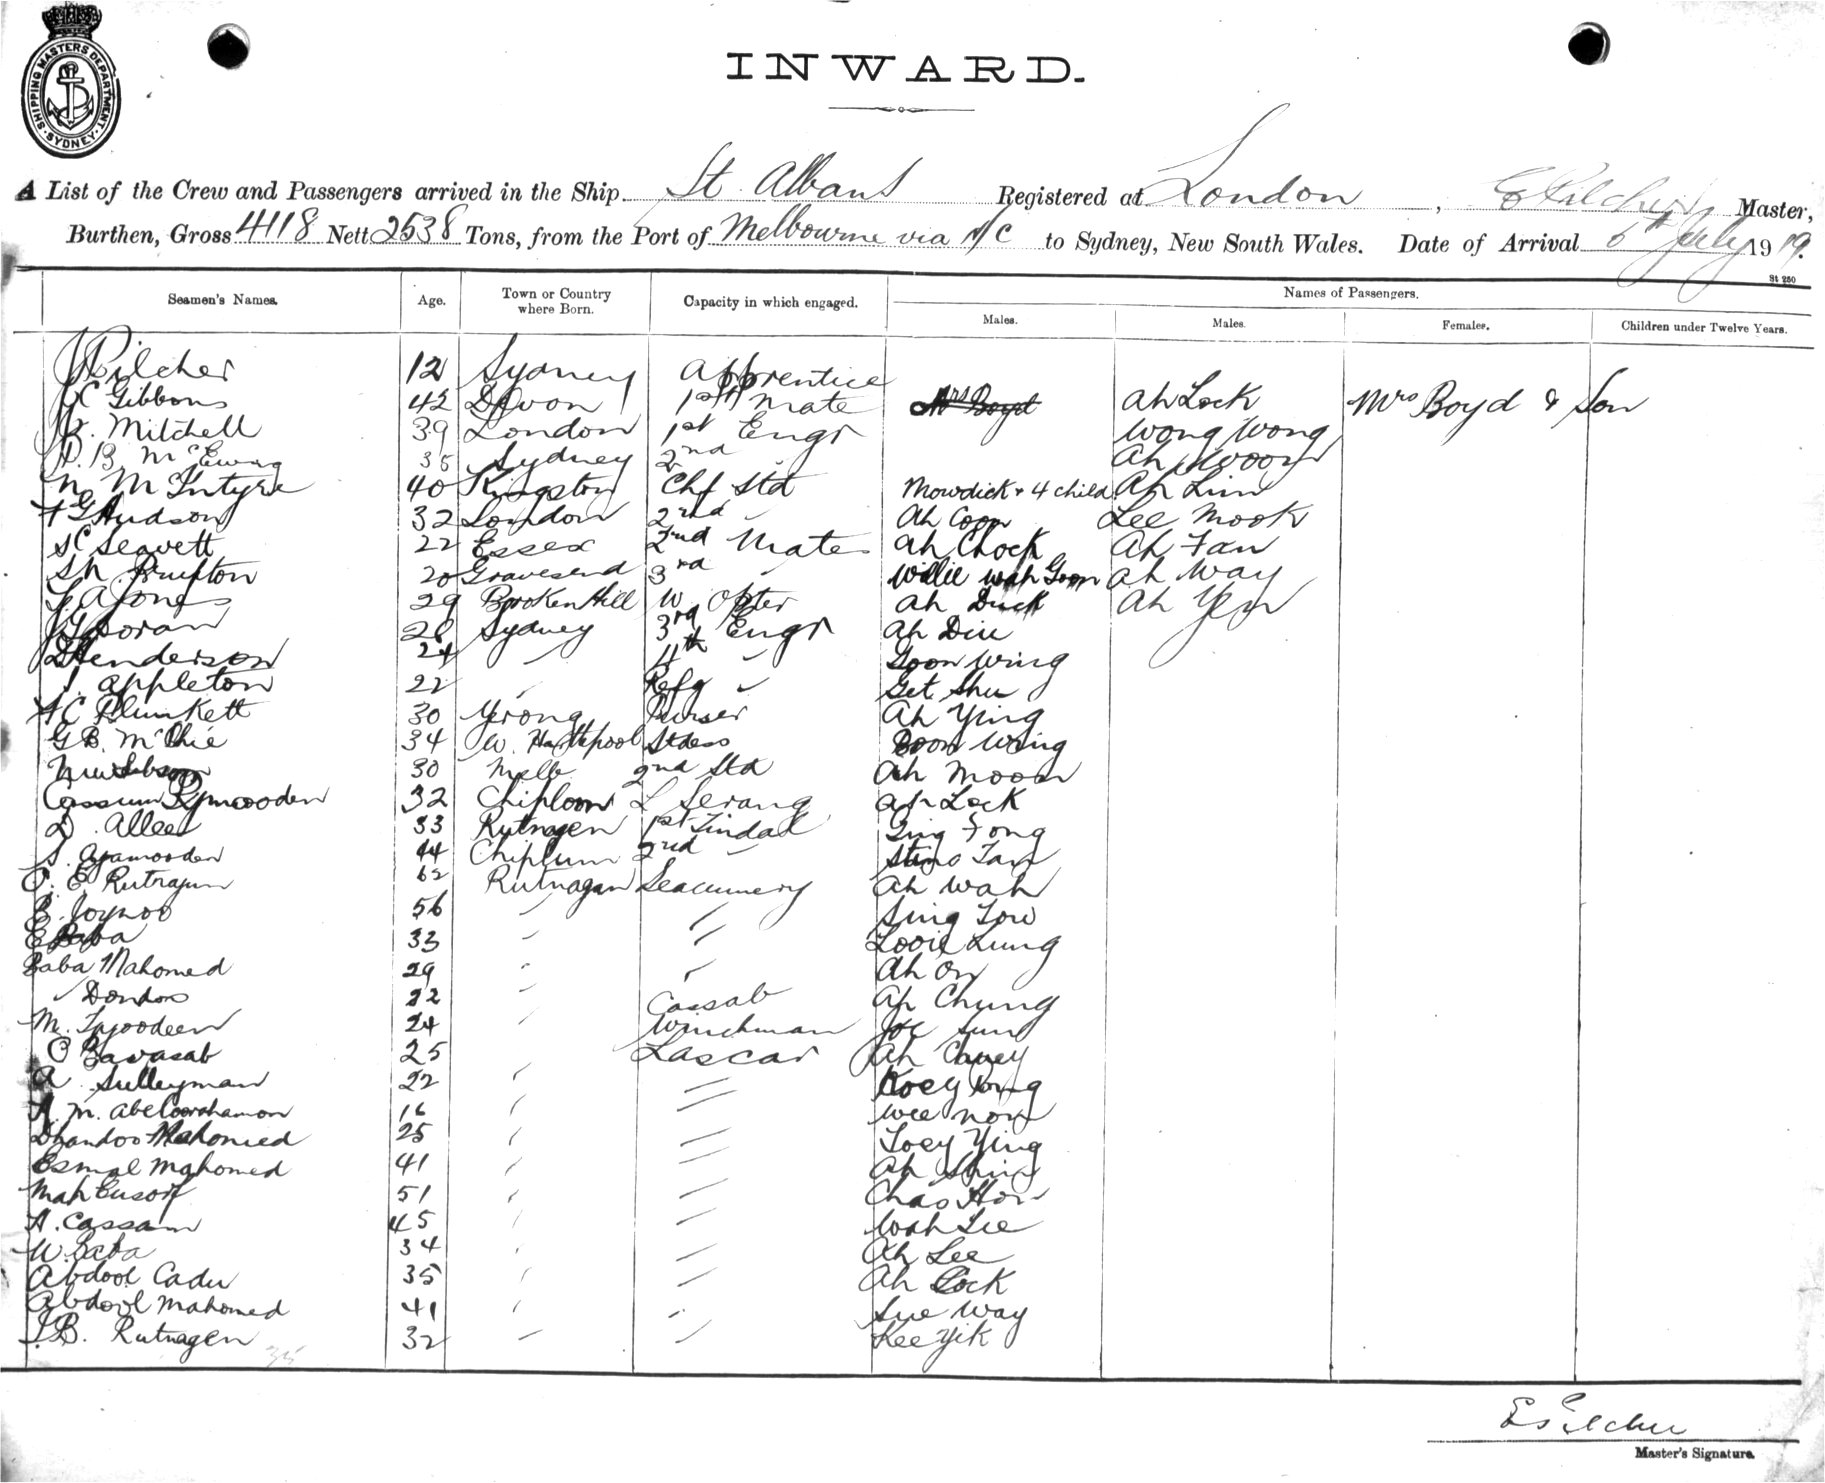 SHIPPING MASTERS DEPARTMENT. SYDNEY.
INWARD.
A List of the Crew and Passengers arrived in the Ship St. Albans Registered at London, E Pilcher Master,
Burthen, Gross 4118 Nett 2538 Tons, from the Port of Melbourne via N/C to Sydney, New South Wales. Date of Arrival 6th July 1919.
St 250
Seamen's Names. Age. Town or Country where Born. Capacity in which engaged. Names of Passengers.
Males. Males. Females. Children under Twelve Years.
J Pilcher 12 Sydney Apprentice
C Gibbons 42 Devon 1st Mate Mrs Boyd Ah Lock Mrs Boyd & Son
Mitchell 39 London 1st Engr Wong Wong
B. McEwing 35 Sydney 2nd Ah Woon
N McIntyre 40 Kingston Chf Std Mowdick + 4 child Ah Lim
F G Hudson 32 London 2nd " Ah Coon Lee Mook
S C Leavett 22 Essex 2nd Mate Ah Chock Ah Fan
S N 20 Gravesend 3rd " Willie Wah Goon Ah Way
L A Jones 29 Broken Hill W Opter Ah Duck Ah Yen
Doran 28 Sydney 3rd Engr Ah Din
Henderson 24 " 4th " Goon Wing
Appleton 22 " Refg " Get Shu
F C Plunkett 30 Yerong Purser Ah Ying
G B. McPhie 34 W. Hartlepool Stdess Boon Wing
30 Melb 2nd Std Ah Moon
Cassum 32 Chiploon L Serang Ah Lock
D. Allee 33 Rutnagen 1st Tindal Ging Fong
S. Ajamooden 44 Chiplum 2nd " Tan
E Rutnagun 62 Rutnagan Seacunnery Ah Wah
E. Joynoo 56 " " Sing Low
E Baba 33 " " Looie Lung
Baba Mahomed 29 " " Ah On
" Dondoo 22 " Cassab Ah Chung
M. 24 " Winchman Joe Sun
C Bawasab 25 Lascar Ah Chuey
A Sulleyman 22 " " Koey Bong
A. M. 16 " " Wee Non
Dhandoo Mahomed 25 " " Loey Ying
Esmal Mahomed 41 " " Ah Shing
Mah Eusoof 51 " " Chas Hon
A. Cassam 45 " " Wah Lee
W Baba 34 " " Ah Lee
Abdool Cadu 35 " " Ah Cock
Abdool Mahomed 41 " " Sue Way
I.B. Rutnagen 32 " " Kee Yik
35
E Pilcher
Master's Signature.